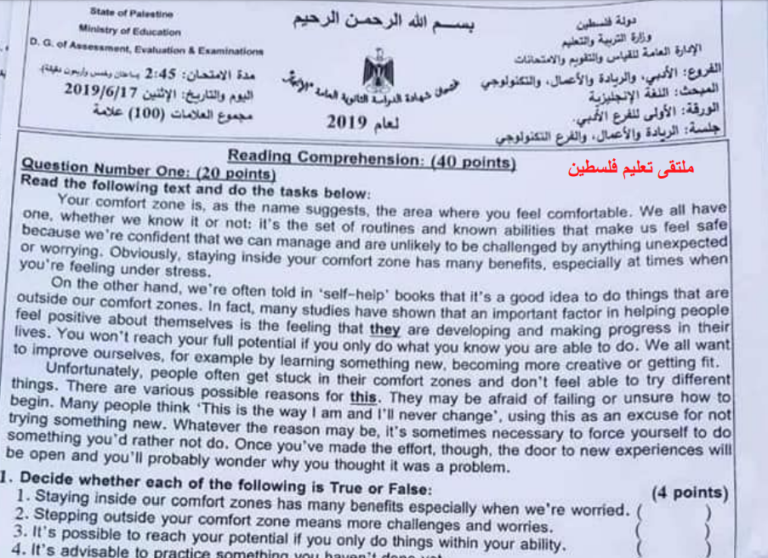 State of Palestine
Ministry of Education
D. G. of Assessment, Evaluation & Examinations
بسم الله الرحمن الرحيم
دولة فلسطين
وزارة التربية والتعليم
الإدارة العامة للقياس والتقويم والامتحانات
الفروع: الأدبي، والريادة والأعمال، والتكنولوجي
المبحث: اللغة الإنجليزية
الورقة: الأولى للفرع الأدبي.
جلسة: الريادة والأعمال، والفرع التكنولوجي
امتحان شهادة الدراسة الثانوية العامة
لعام 2019
مدة الامتحان: 2:45 (ساعتان وخمس وأربعون دقيقة).
اليوم والتاريخ: الإثنين 2019/6/17
مجموع العلامات (100) علامة
ملتقى تعليم فلسطين
Reading Comprehension: (40 points)
Question Number One: (20 points)
Read the following text and do the tasks below:
Your comfort zone is, as the name suggests, the area where you feel comfortable. We all have
one, whether we know it or not: it's the set of routines and known abilities that make us feel safe
because we're confident that we can manage and are unlikely to be challenged by anything unexpected
or worrying. Obviously, staying inside your comfort zone has many benefits, especially at times when
you're feeling under stress.
On the other hand, we're often told in 'self-help' books that it's a good idea to do things that are
outside our comfort zones. In fact, many studies have shown that an important factor in helping people
feel positive about themselves is the feeling that they are developing and making progress in their
lives. You won't reach your full potential if you only do what you know you are able to do. We all want
to improve ourselves, for example by learning something new, becoming more creative or getting fit.
Unfortunately, people often get stuck in their comfort zones and don't feel able to try different
things. There are various possible reasons for this. They may be afraid of failing or unsure how to
begin. Many people think 'This is the way I am and I'll never change', using this as an excuse for not
trying something new. Whatever the reason may be, it's sometimes necessary to force yourself to do
something you'd rather not do. Once you've made the effort, though, the door to new experiences will
be open and you'll probably wonder why you thought it was a problem.
1. Decide whether each of the following is True or False: (4 points)
1. Staying inside our comfort zones has many benefits especially when we're worried. ( )
2. Stepping outside your comfort zone means more challenges and worries.
3. It's possible to reach your potential if you only do things within your ability.
4. It's advisable to practice something you haven't done yet